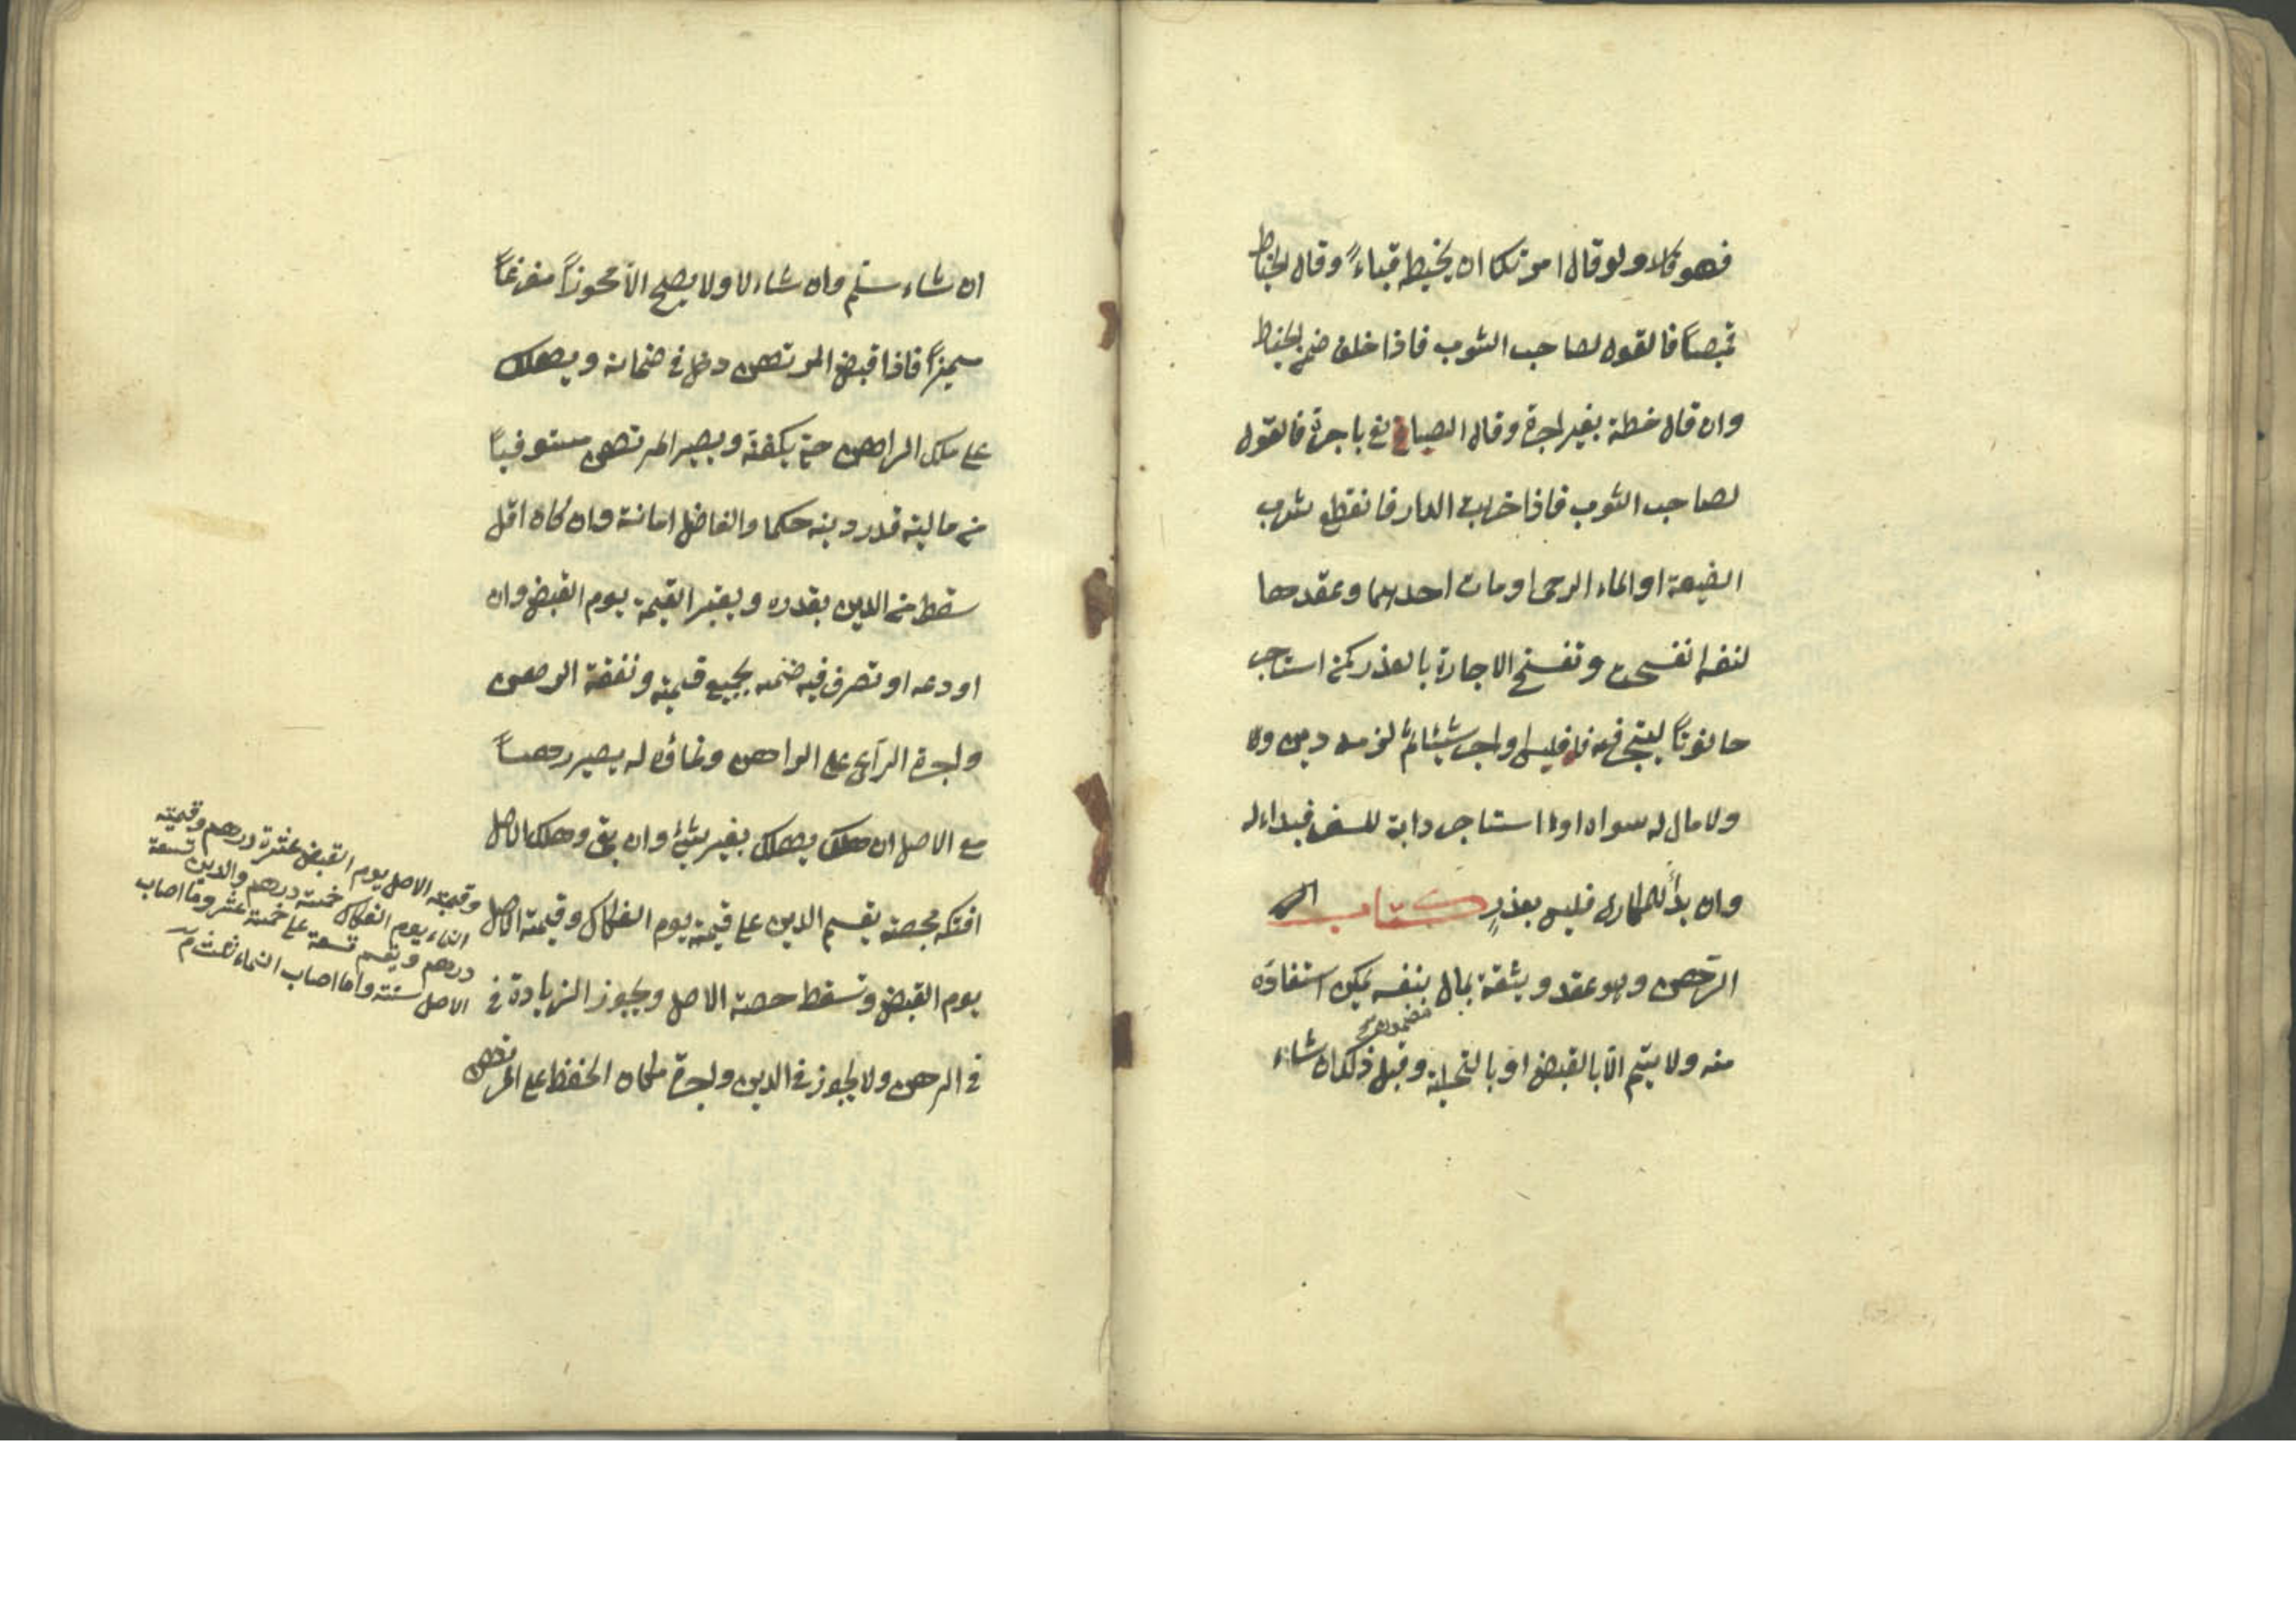 فهو كالاول ولو قال امرتك ان يخيط قباءً وقال الخياط
قميصاً فالقول لصاحب الثوب فاذا خلف ضمن الخياط
وان قال خطته بغير اجرة وقال الصباغ باجرة فالقول
لصاحب الثوب فاذا خربت الدار فانقطع شرب
الضيعة او الماء الرحى او مات احدهما وعقدها
لنفسه انفسخت وتفسخ الاجارة بالعذر كمن استاجر
حانوتاً ليتجر فيه فافلس او اجر شيئا ثم لزمه دين ولا
ولا مال له سواه او استاجر دابة للسفر فبداء له
وان بدأ للمكارى فليس بعذرٍ كتاب
الرّهن وهو عقد وثيقة بمال بنفسه يمكن استفاؤه
مضمون صح
منه ولا يتم الّا بالقبض او بالتخلية وقبل ذلك ان شاء
ان شاء سلّم وان شاء لا ولا يصح الّا محوزاً مفرغاً
مميزاً فاذا قبض المرتهن دخل في ضمانه ويهلك
على ملك الراهن حتى يكفنه ويصير المرتهن مستوفياً
من ماليته قدر دينه حكما والفاضل امانة وان كان اقل
سقط من الدين بقدره ويعتبر القيمة يوم القبض وان
اودعه او تصرف فيه ضمنه بجميع قيمته ونفقة الرهن
واجرة الرّاعى على الراهن ونماؤه له يصير رهناً
مع الاصل ان هلك يهلك بغير شئ وان بقى وهلك الاصل
افتكه بحصته يقسم الدين على قيمته يوم الفكاك وقيمة الاصل
يوم القبض وتسقط حصة الاصل ويجوز الزيادة في
في الرهن ولا يجوز في الدين واجرة مكان الحفظ على المرتهن
وقيمة الاصل يوم القبض عشرة درهم وقيمته
النماء يوم الفكاك خمسة درهم والدين تسعة
درهم ويقسم تسعة على خمسة عشر وما اصاب
الاصل ستة واما اصاب النماء ثلث م